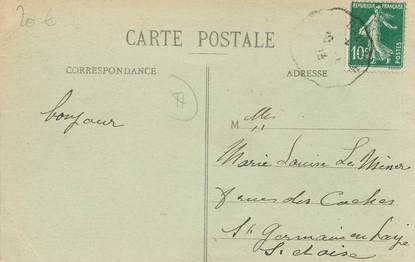 20 €
RÉPUBLIQUE FRANÇAISE
10c
POSTES
CARTE POSTALE
CORRESPONDANCE
ADRESSE
bonjour
M Mlle
Marie Louise Le Miner
rue des Coches
St Germain en Laye
S. et Oise